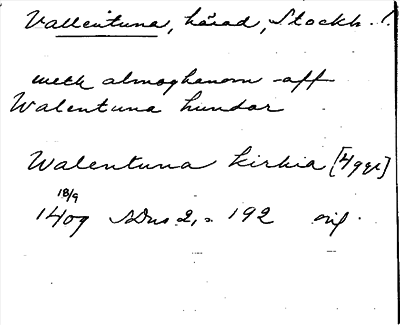 Vallentuna, härad, Stockh. l.
meth almoghanom aff
Walentuna hundar
Walentuna kirkia [4 ggr]
18/9
1409 SDns 2, s 192 or.